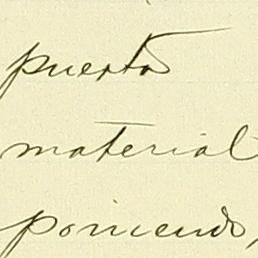 puerto
material
poniendo,